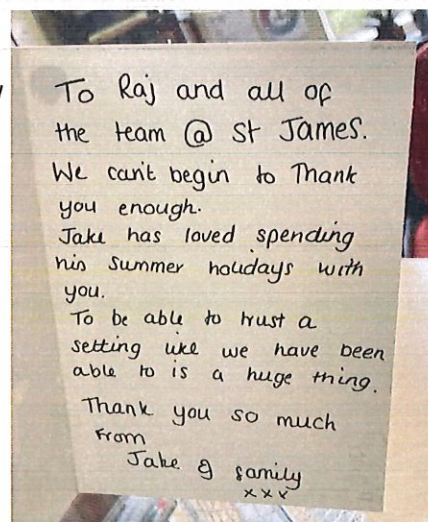 To Raj and all of
the team @ St James.
We can't begin to Thank
you enough.
Jake has loved spending
his Summer holidays with
you.
To be able to trust a
setting like we have been
able to is a huge thing.
Thank you so much
From
Jake & family
xxx